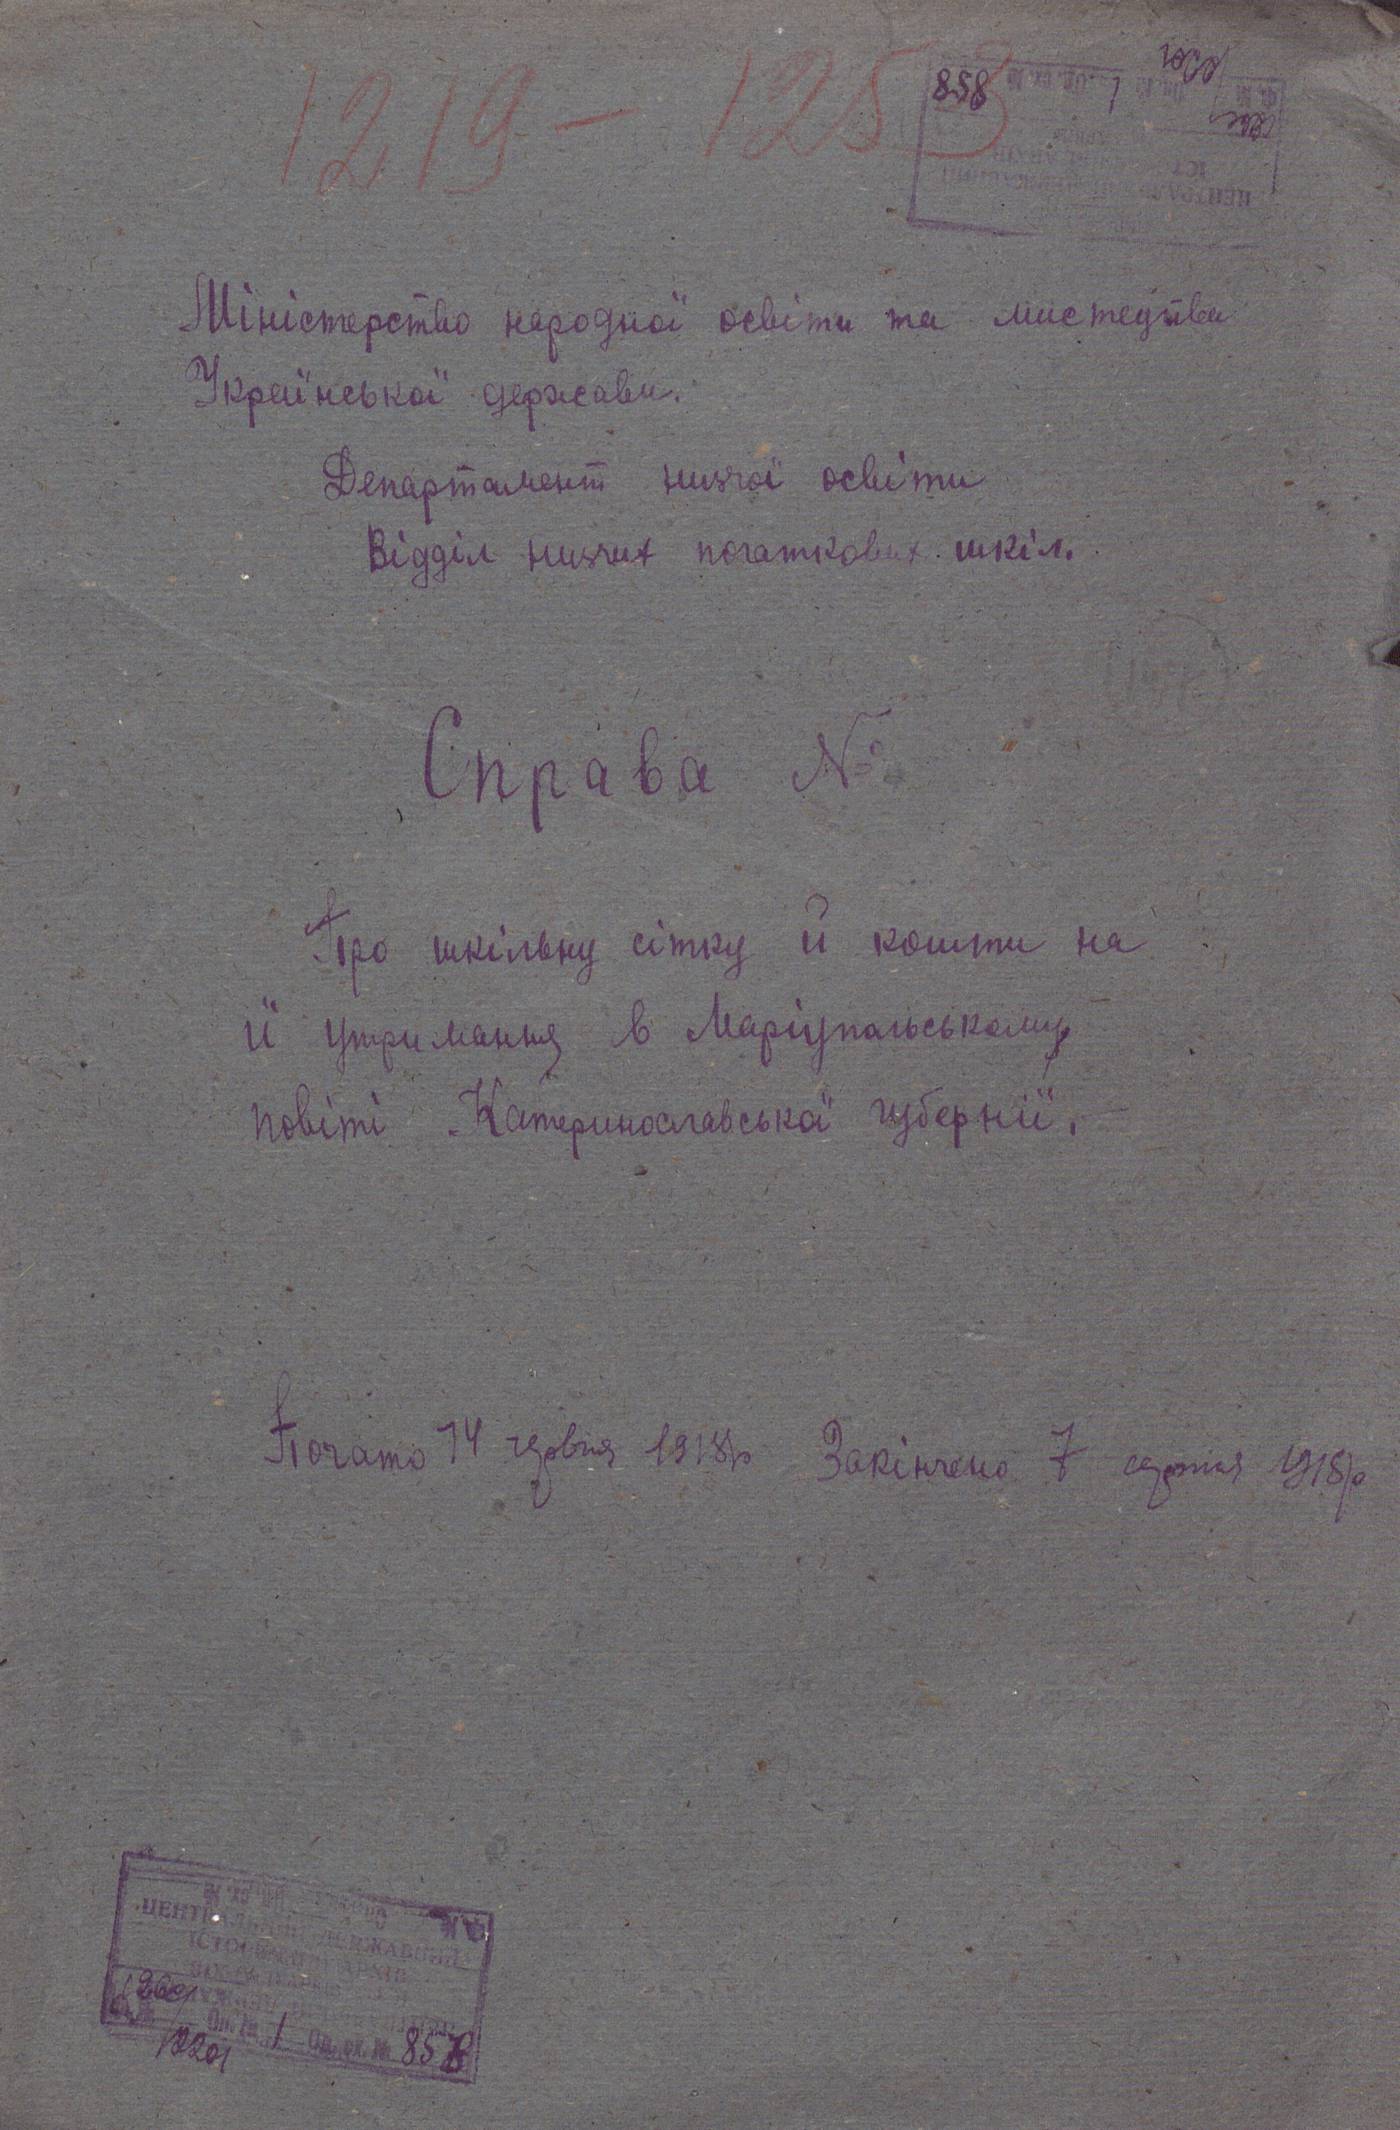 1219 – 1253
858
Міністерство народної освіти та мистецтва
Української держави.
Департамент низчої освіти
Відділ низчих початкових шкіл.
Справа №
Про шкільну сітку й кошти на
її утримання в Маріупольському
повіті Катеринославської губернії.
Почато 14 червня 1918 р Закінчено 7 серпня 1918 р
ЦЕНТРАЛЬНИЙ ДЕРЖАВНИЙ
ІСТОРИЧНИЙ АРХІВ
Оп. № 1 Од. зх. № 858
2201